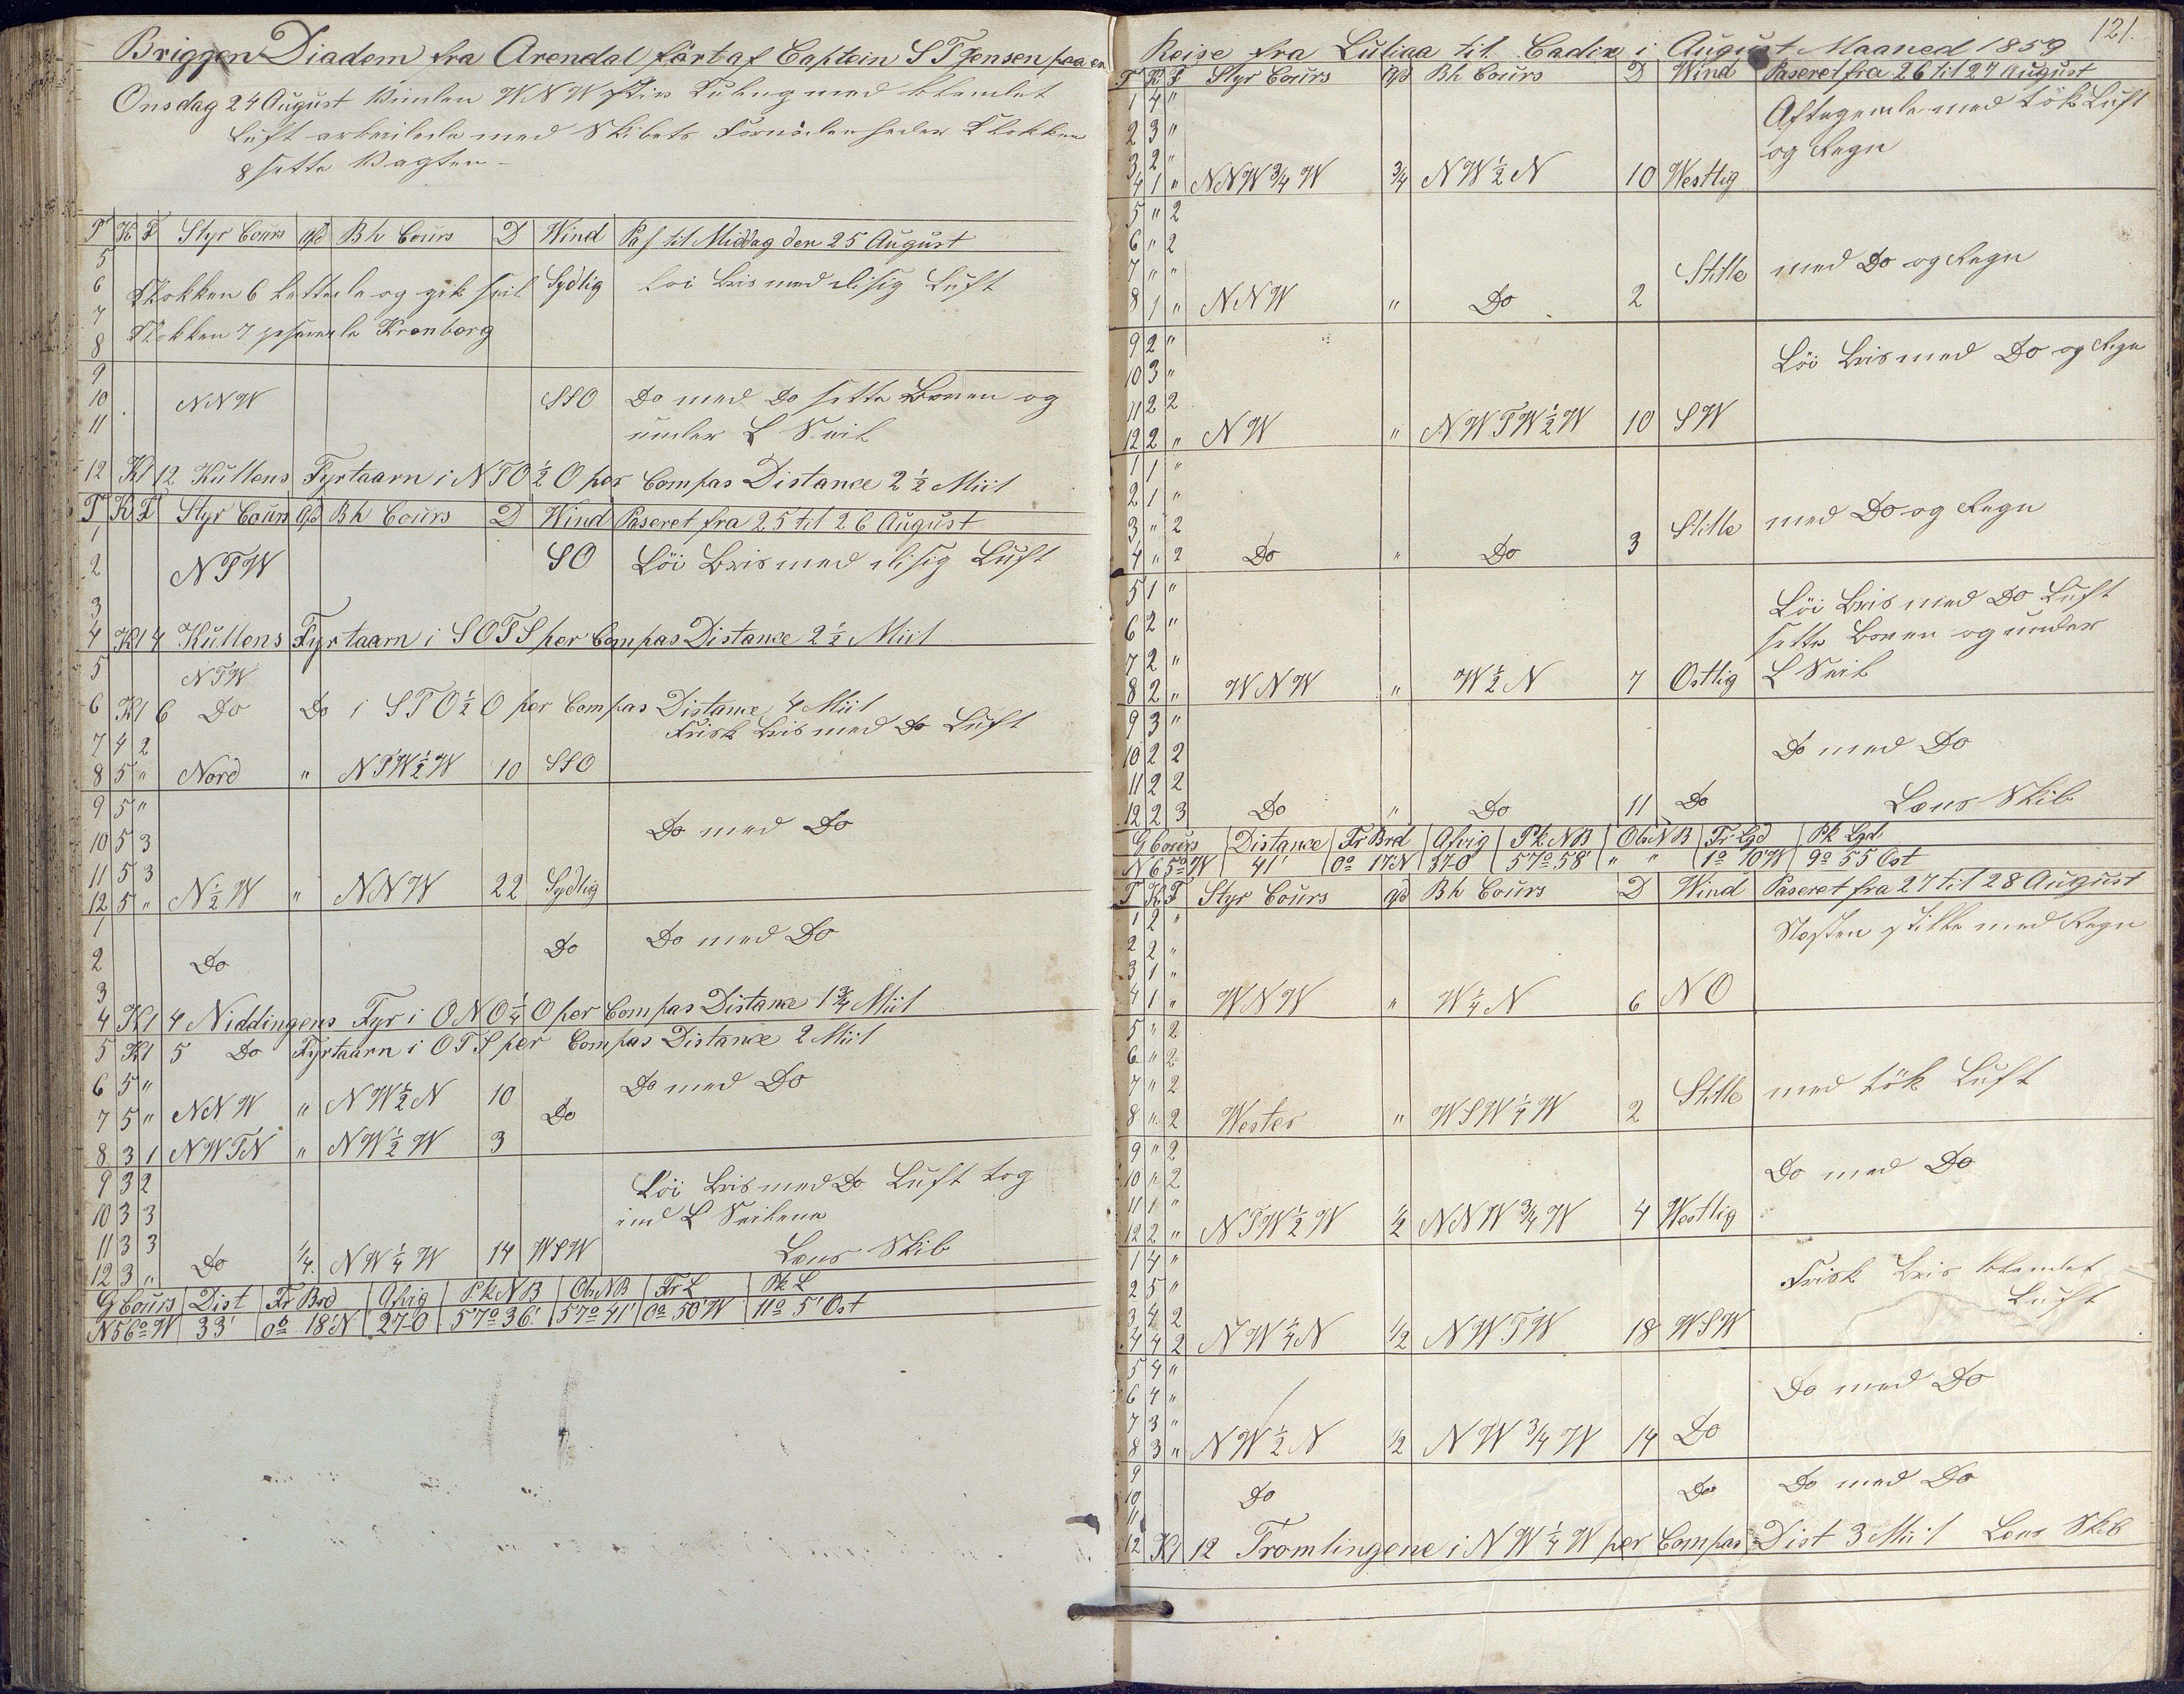 Briggen Diadem fra Arendal fört af Captein S T Jensen paa en
Onsdag 24 August Vinden WNW stiv Kuling med klamlet
Luft arbeidede med Skibets Fornödenheder Klokken
8 sette Vagten –
T K F Styr Cours Afd Bh Cours D Wind Pas til Middag den 25 August
5
6 Klokken 6 lettede og gik seil Sydlig Löi Bris med disig Luft
7 Klokken 7 passerede Kronborg
8
9
10 NNW SSO Do med Do sette Boven og
11 under L Seil
12 Kl 12 Kullens Fyrtaarn i NTO ½ O per Compas Distance 2 ½ Miil
T K F Styr Cours Afd Bh Cours D Wind Paseret fra 25 til 26 August
1
2 NTW SO Löi Bris med disig Luft
3
4 Kl 4 Kullens Fyrtaarn i SOTS per Compas Distance 2 ½ Miil
5 NTW
6 Kl 6 Do Do i STO ½ O per Compas Distance 4 Miil
Frisk Bris med Do Luft
7 4 2
8 5 " Nord " NTW ½ W 10 SSO
9 5 "
Do med Do
10 5 3
11 5 3
12 5 " N ½ W " NNW 22 Sydlig
1
2 Do Do Do med Do
3
4 Kl 4 Niddingens Fyr i ONO ¼ O per Compas Distance 1 ¾ Miil
5 Kl 5 Do Fyrtaarn i OTS per Compas Distance 2 Miil
6 5 " Do med Do
7 5 " NNW " NW ½ N 10 Do
8 3 1 NWTN " NW ½ W 3
9 3 2 Löi Bris med Do Luft tog
10 3 3 ind L Seilene
11 3 3
12 3 " Do ¼ NW ¼ W 14 WSW Lens Skib
G Cours Dist Fr Brd Afvig Pk NB Obs NB Fr L Pk L
N 56° W 33' 0° 18' N 27 O 57° 36' 57° 41' 0° 50' W 11° 5' Ost
121.
Reise fra Luliaa til Cadix i August Maaned 1859
T K F Styr Cours Afd Bh Cours D Wind Paseret fra 26 til 27 August
1 4 " Aftagende med tök Luft
2 3 " og Regn
3 2 "
4 1 " NNW ¾ W ¾ NW ½ N 10 Westlig
5 " 2
6 " 2
7 " " Stille med Do og Regn
8 1 " NNW " Do 2
9 2 " Löi Bris med Do og Regn
10 3 "
11 2 2
12 2 " NW " NWTW ½ W 10 SW
1 1 "
2 1 "
3 " 2 Stille med Do og Regn
4 " 2 Do " Do 3
5 1 " Löi Bris med Do Luft
6 2 " sette Boven og under
7 2 " L Seil
8 2 " WNW " W ½ N 7 Ostlig
9 3 "
10 2 2 Do med Do
11 2 2
12 2 3 Do " Do 11 Do Lens Skib
G Cours Distance Fr Brd Afvig Pk NB Obs NB Fr Lgd Pk Lgd
N 65° W 41' 0° 17' N 37 O 57° 58' " " 1° 10' W 9° 55 Ost
T K F Styr Cours Afd Bh Cours D Wind Paseret fra 27 til 28 August
1 2 " Næsten stille med Regn
2 2 "
3 1 "
4 1 " WNW " W ¼ N 6 NO
5 " 2
6 " 2
7 " 2 Stille med tök Luft
8 " 2 Wester " WSW ¼ W 2
9 " 2
10 " 2 Do med Do
11 1 "
12 2 " NTW ½ W ½ NNW ¾ W 4 Westlig
1 4 " Frisk Bris klamlet
2 5 " Luft
3 4 2
4 4 2 NW ¼ N ½ NWTW 18 WSW
5 4 "
6 4 " Do med Do
7 3 "
8 3 " NW ½ N ½ NW ¾ W 14 Do
9
10 Do Do Do med Do
11
12 Kl 12 Tromlingene i NW ¼ W per Compas Dist 3 Miil Lens Skib